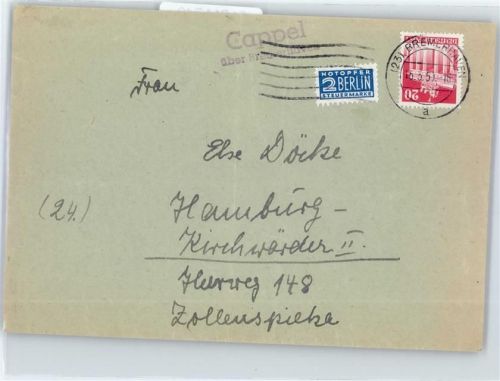 Cappel
über
NOTOPFER
2 BERLIN
STEUERMARKE
(23) BREMERHAVEN
a
20
Frau
Else Döcke
(24.)
Hamburg-
Kirchwärder II.
148
Zollenspieka